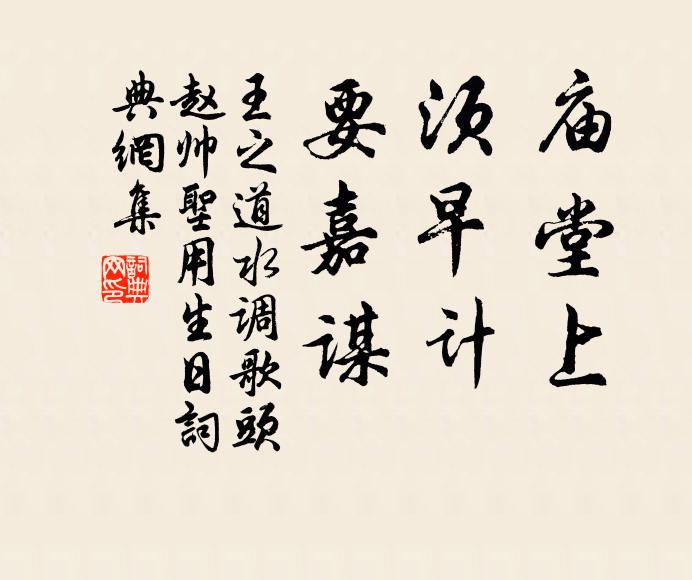 庙堂上
须早计
要嘉谋
王之道水调歌頭
赵帅聖用生日詞
典網集
詞典
网印